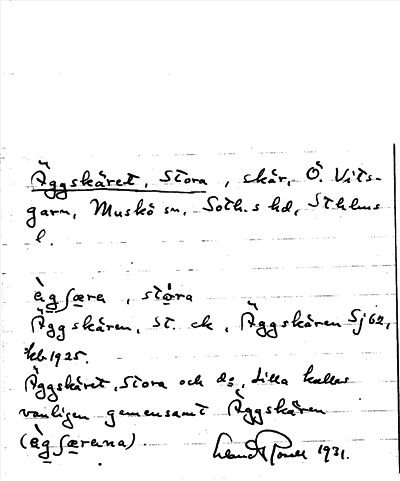 Äggskäret, Stora, skär, Ö. Vits-
garn, Muskö sn, Soth.s hd, Sthlms
l.
ägʃæra, stóra
Äggskären, St. ek, Äggskären Sj 62,
kb 1925.
Äggskäret, Stora och d:o, Lilla kallas
vanligen gemensamt Äggskären
(ägʃærana). 1931.